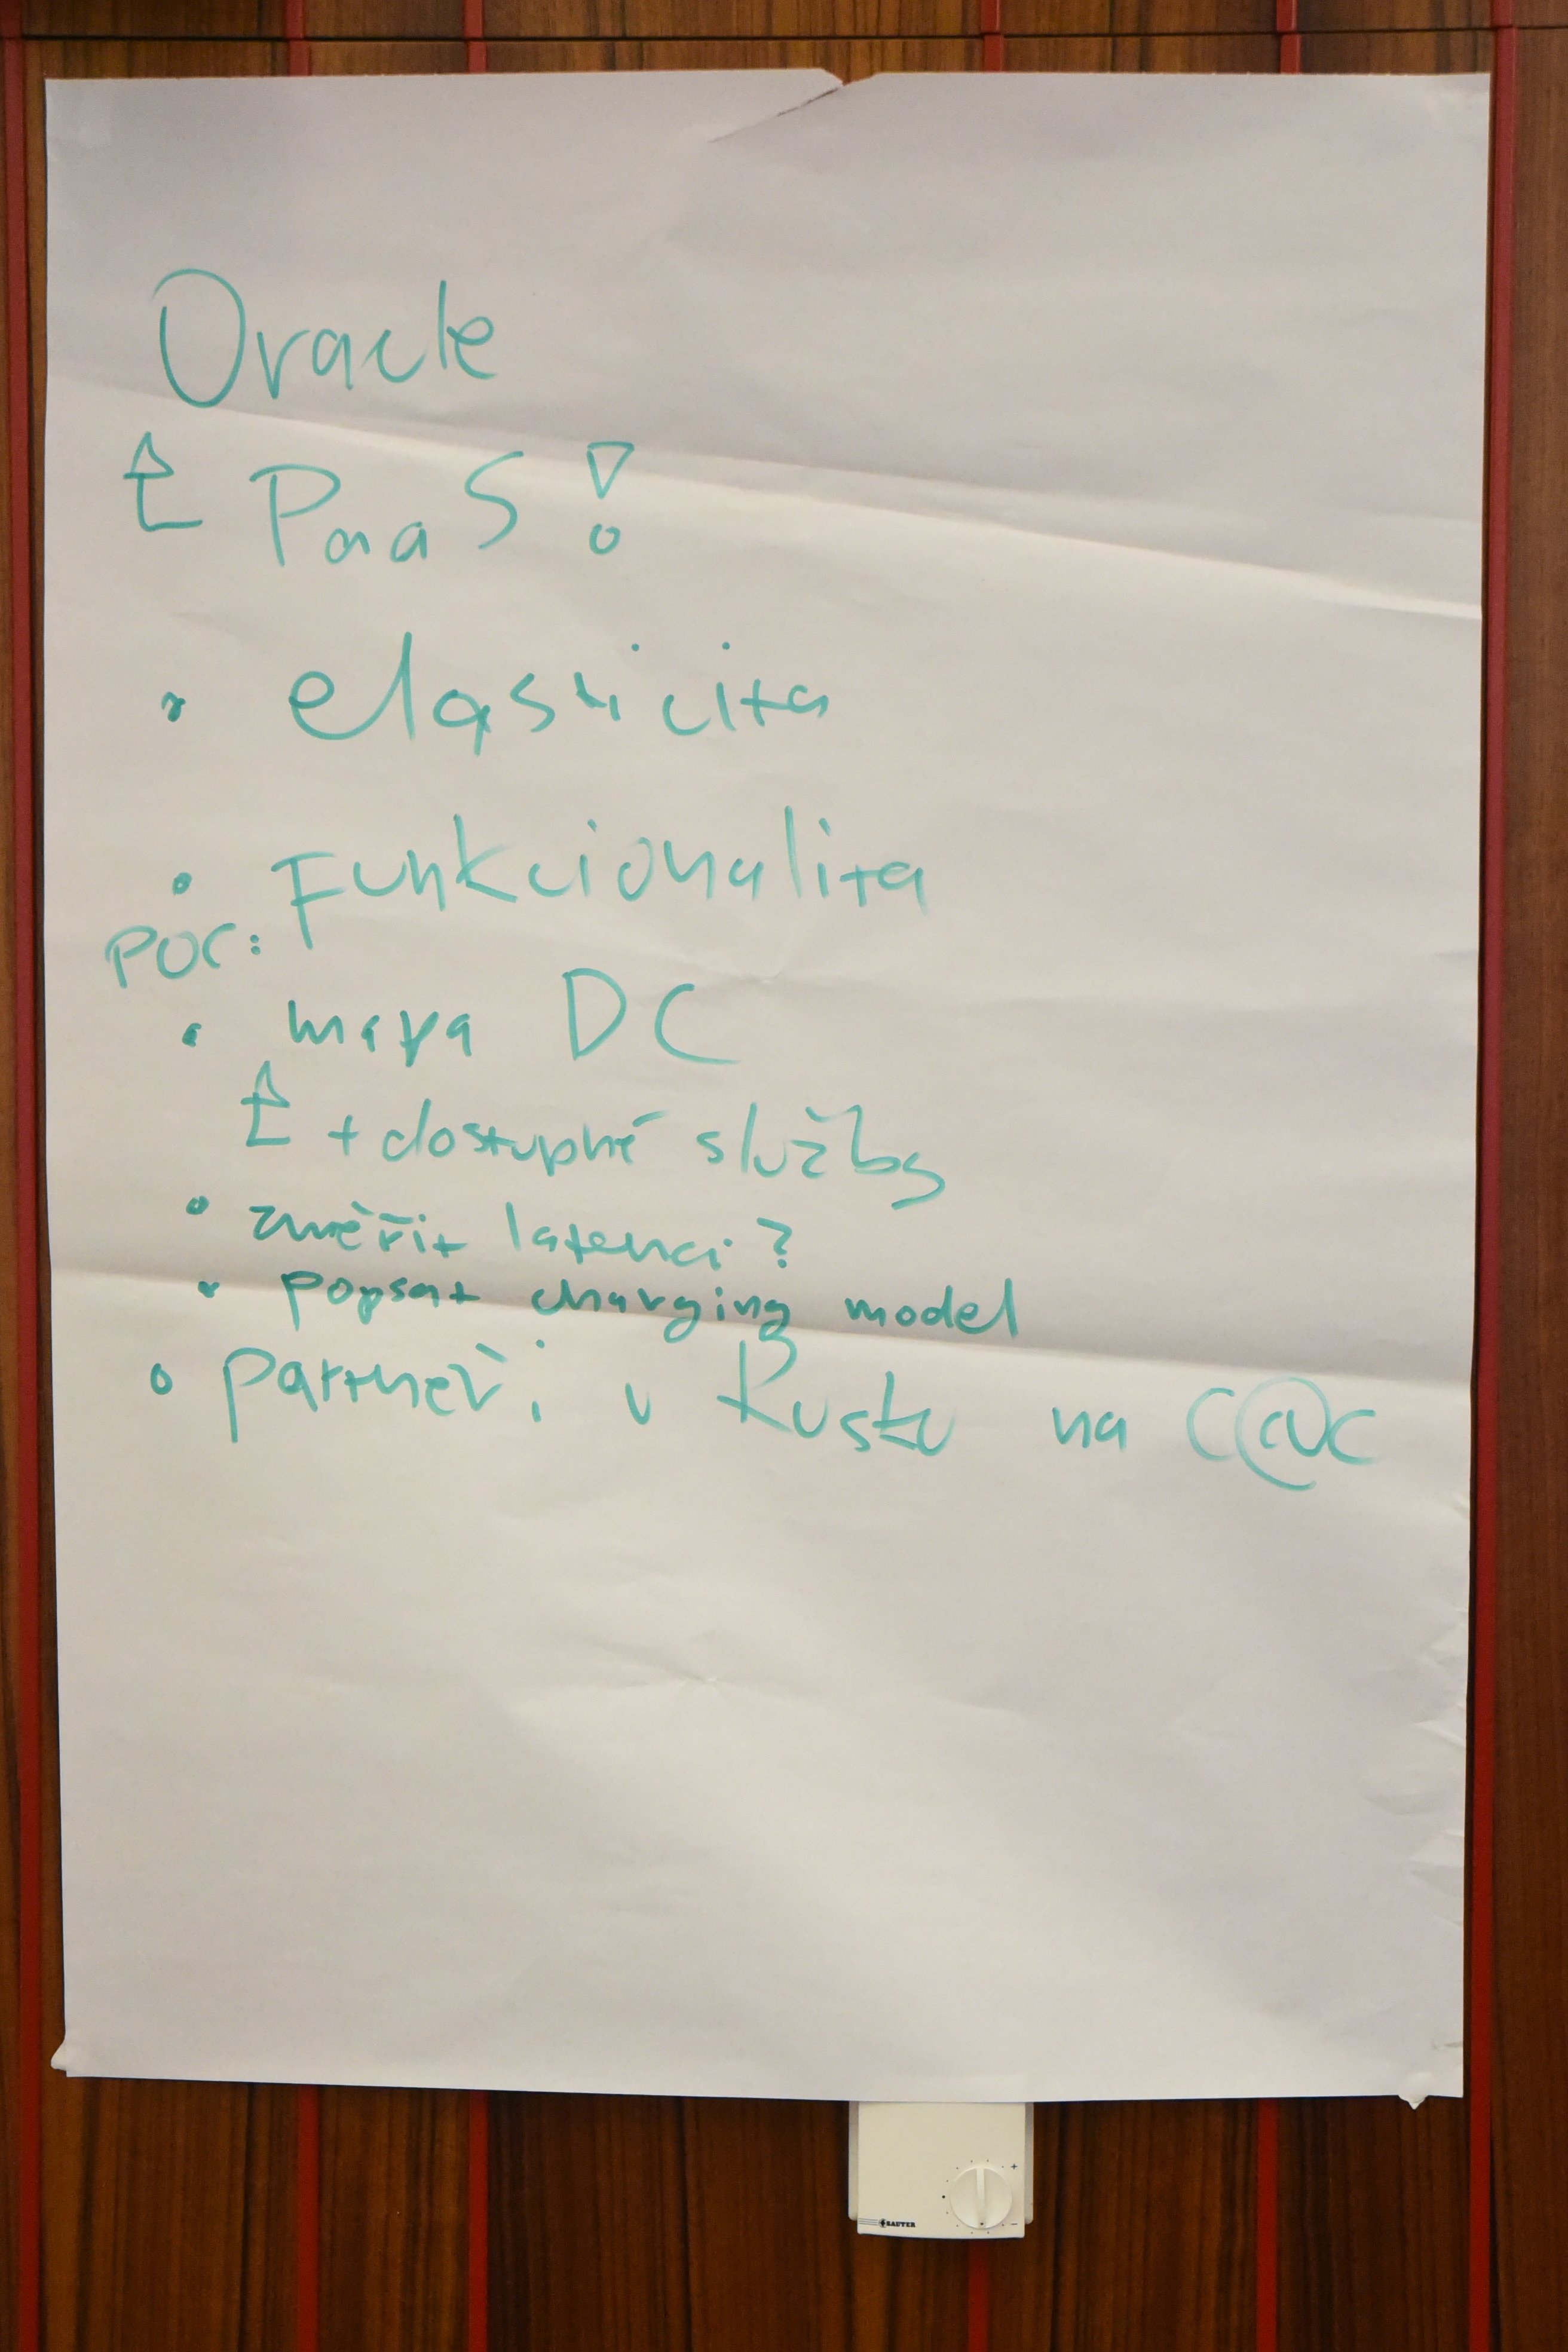 Oracle
PaaS!
• elasticita
• Funkcionalita
POC:
• mapa DC
+ dostupné služby
• změřit latenci?
• popsat charging model
• partneři v Rusku na C@C
SAUTER